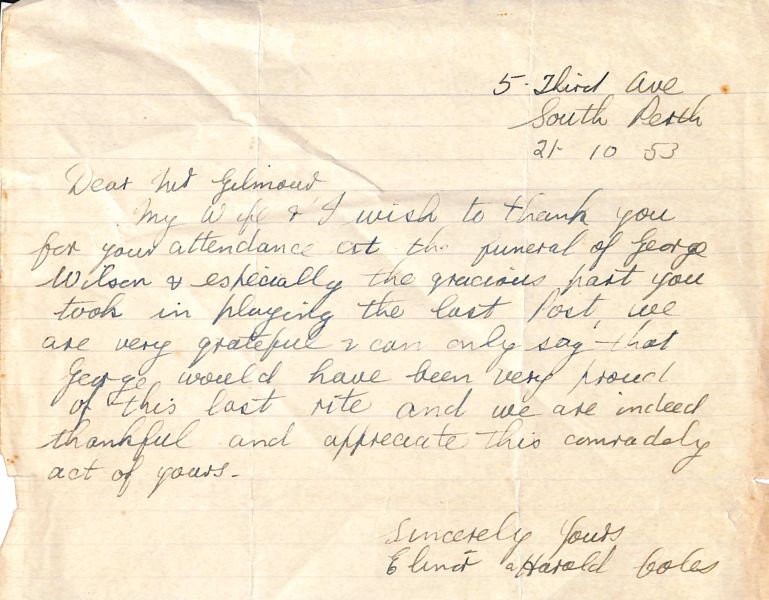 5 Third Ave
South Perth
21 10 53
Dear Mr Gilmour
My Wife & I wish to thank you
for your attendance at the funeral of George
Wilson & especially the gracious part you
took in playing the last Post, we
are very grateful & can only say that
George would have been very proud
of this last rite and we are indeed
thankful and appreciate this comradely
act of yours.
Sincerely Yours
& Harold Coles